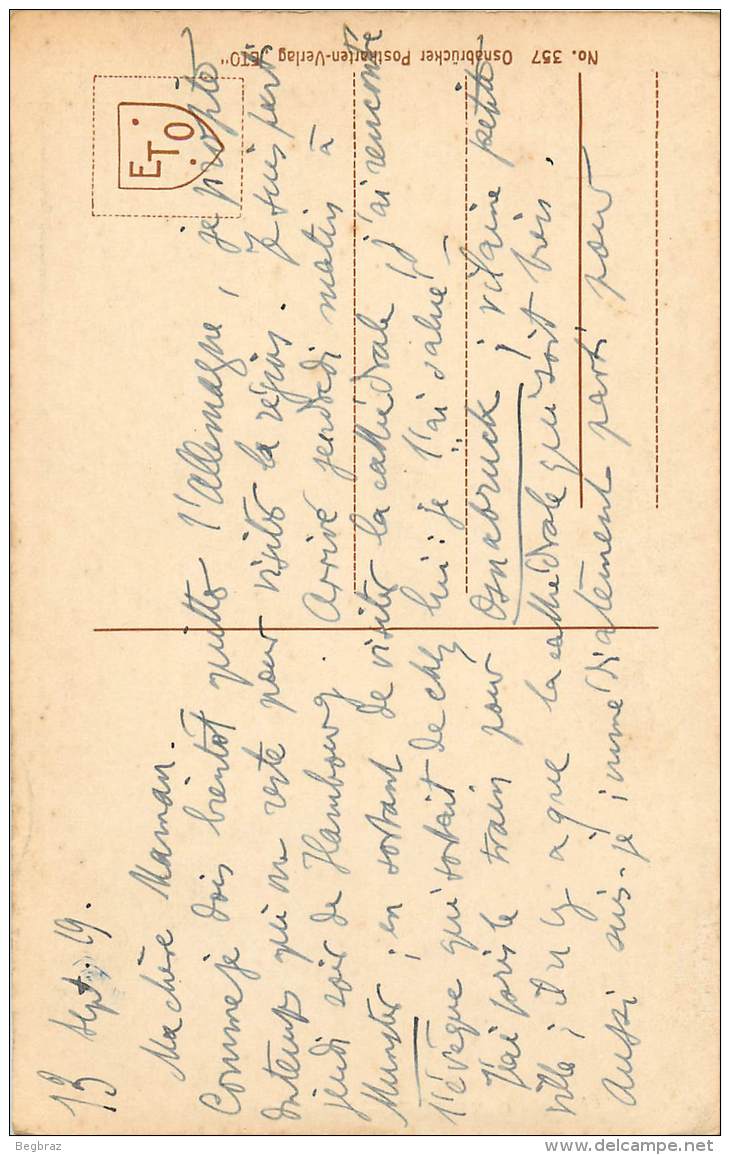 13 Sept. 19.
Ma chère Maman.
Comme je dois bientôt quitter l'Allemagne, je profite
du temps qui me reste pour visiter la région. Je suis parti
jeudi soir de Hambourg. Arrivé vendredi matin à
Munster ; en sortant de visiter la cathédrale j'ai rencontré
l'évêque qui sortait de chez lui : je l'ai salué –
J'ai pris le train pour Osnabruck, vilaine petite
ville ; il n'y a que la cathédrale qui soit bien.
Aussi suis-je immédiatement parti pour
No. 357 Osnabrücker Postkarten-Verlag „ETO"
ETO
Begbraz
delcampe.net